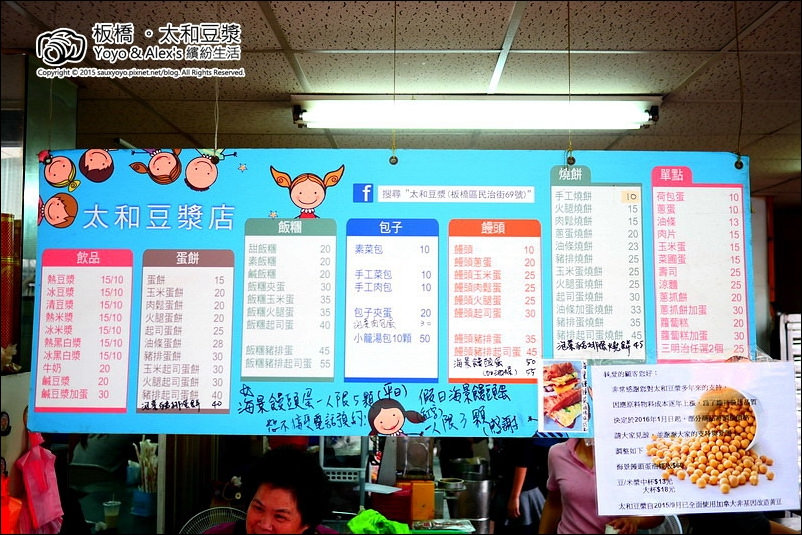 板橋 • 太和豆漿
Yoyo & Alex's 繽紛生活
Copyright © 2015 sauxyoyo.pixnet.net/blog. All Rights Reserved.
太和豆漿店
f 搜尋 "太和豆漿(板橋區民治街69號)"
飲品
熱豆漿 15/10
冰豆漿 15/10
清豆漿 15/10
熱米漿 15/10
冰米漿 15/10
熱黑白漿 15/10
冰黑白漿 15/10
牛奶 20
鹹豆漿 20
鹹豆漿加蛋 30
蛋餅
蛋餅 20
玉米蛋餅 30
肉鬆蛋餅 30
火腿蛋餅 30
起司蛋餅 30
油條蛋餅 28
豬排蛋餅 30
玉米起司蛋餅 40
火腿起司蛋餅 40
豬排起司蛋餅 40
飯糰
甜飯糰 20
素飯糰 20
鹹飯糰 20
飯糰夾蛋 30
飯糰玉米蛋 35
飯糰火腿蛋 35
飯糰起司蛋 40
飯糰豬排蛋 45
飯糰豬排起司蛋 55
包子
素菜包 10
手工菜包 10
手工肉包 10
包子夾蛋 20
小籠湯包10顆 50
饅頭
饅頭 10
饅頭蔥蛋 20
饅頭玉米蛋 25
饅頭肉鬆蛋 25
饅頭火腿蛋 25
饅頭起司蛋 30
饅頭豬排蛋 35
饅頭豬排起司蛋 45
燒餅
手工燒餅 10
火腿燒餅 15
肉鬆燒餅 15
蔥蛋燒餅 20
油條燒餅 23
起司燒餅 20
玉米蛋燒餅 25
火腿蛋燒餅 25
起司蛋燒餅 30
油條蛋燒餅 33
豬排燒餅 25
豬排蛋燒餅 35
豬排起司蛋燒餅 45
單點
荷包蛋 10
蔥蛋 10
油條 13
肉片 15
玉米蛋 15
菜圃蛋 15
壽司 25
涼麵 25
蔥抓餅 20
蔥抓餅加蛋 30
蘿蔔糕 20
蘿蔔糕加蛋 30
三明治任選2個 25
一人限5顆(平日)
一人限3顆
謝謝
親愛的顧客您好：
非常感謝您對太和豆漿多年來的支持，
因應原物料料成本逐年上漲，為了維持優良品質
決定於2016年1月起，部分
請大家見諒，並謝謝大家的支持與
調整如下
豆/米漿中杯$13元
大杯$18元
太和豆漿自2015/9月已全面使用加拿大非基因改造黃豆